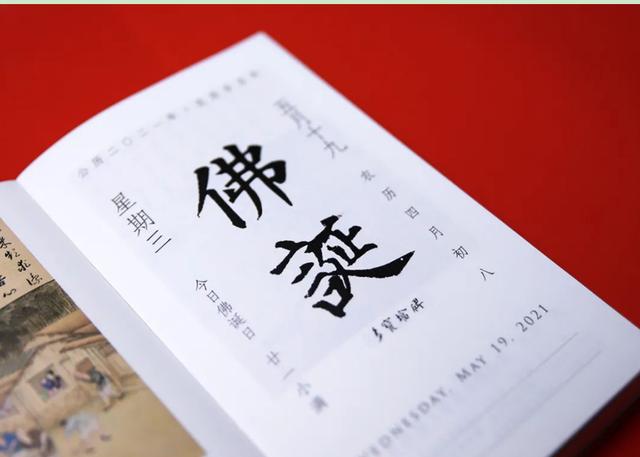 公历二〇二一年
五月十九
农历四月初八
佛誕
多寶塔碑
星期三
今日佛诞日 廿一小满
WEDNESDAY, MAY 19, 2021